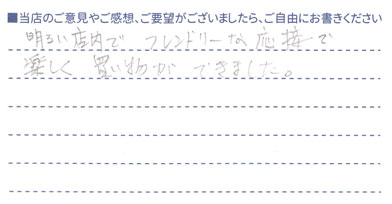 ■当店のご意見やご感想、ご要望がございましたら、ご自由にお書きください
明るい店内で フレンドリーな応接で
楽しく 買い物が できました。